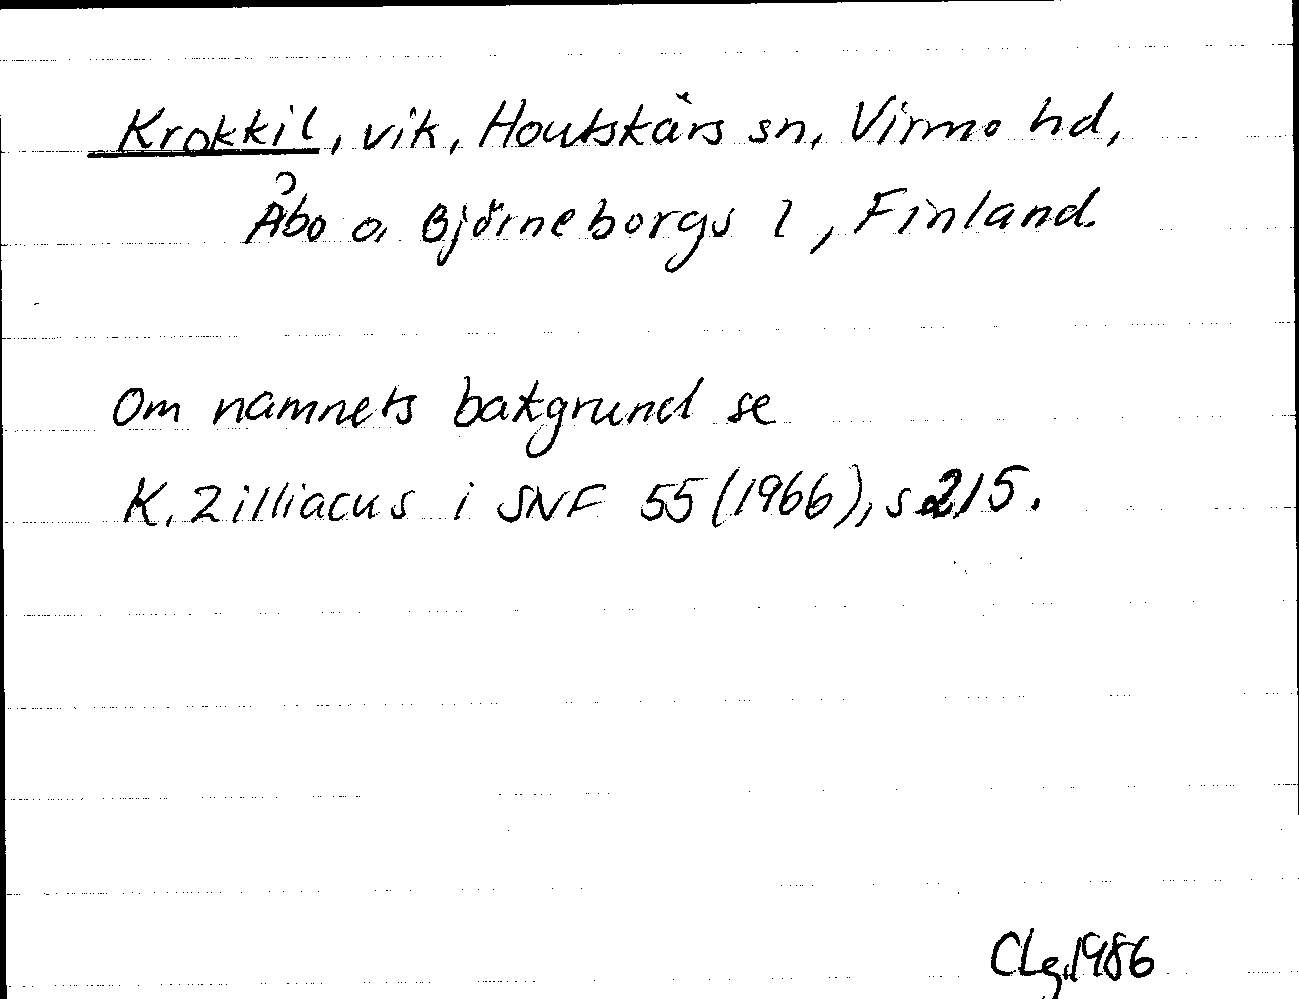 Krokkil, vik, Houtskärs sn, Virmo hd,
Åbo o. Björneborgs l, Finland.
Om namnets bakgrund se
K. Zilliacus i SNF 55 (1966), s 215.
CLg. 1986